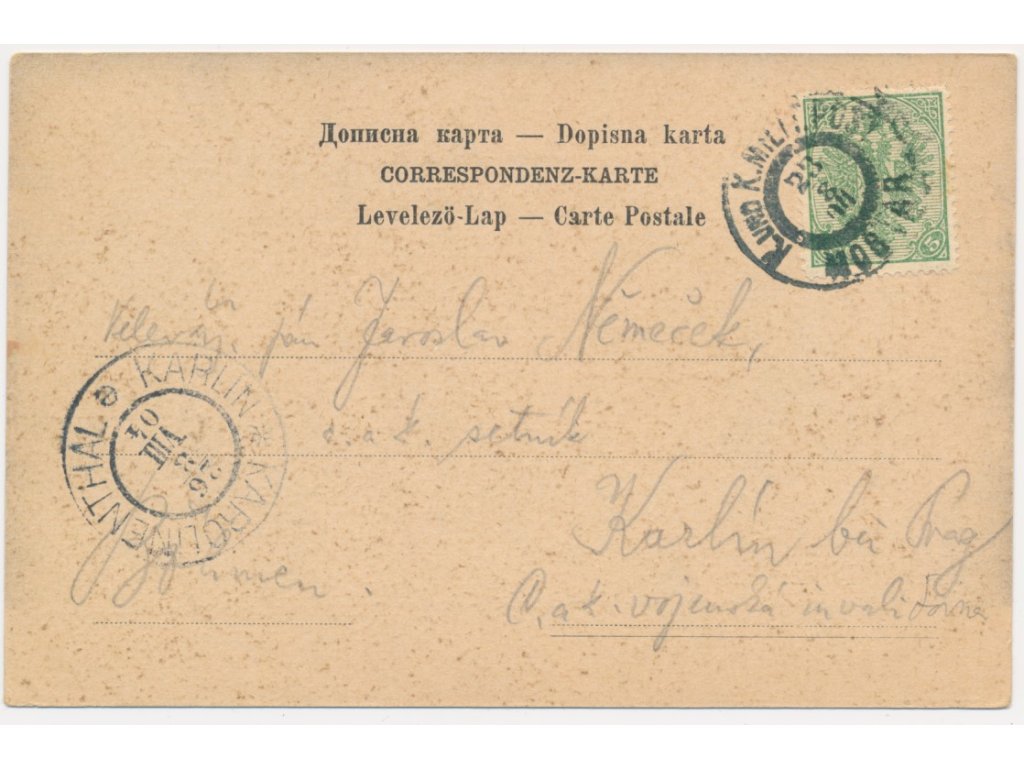 Дописна карта — Dopisna karta
CORRESPONDENZ-KARTE
Levelező-Lap — Carte Postale
K. UND K. MILIT. POST
MOSTAR
5
pán Jaroslav Němeček,
c. a k. setník
Karlín bei Prag
C. a k. vojenská invalidovna
KARLÍN * KAROLINENTHAL
VIII